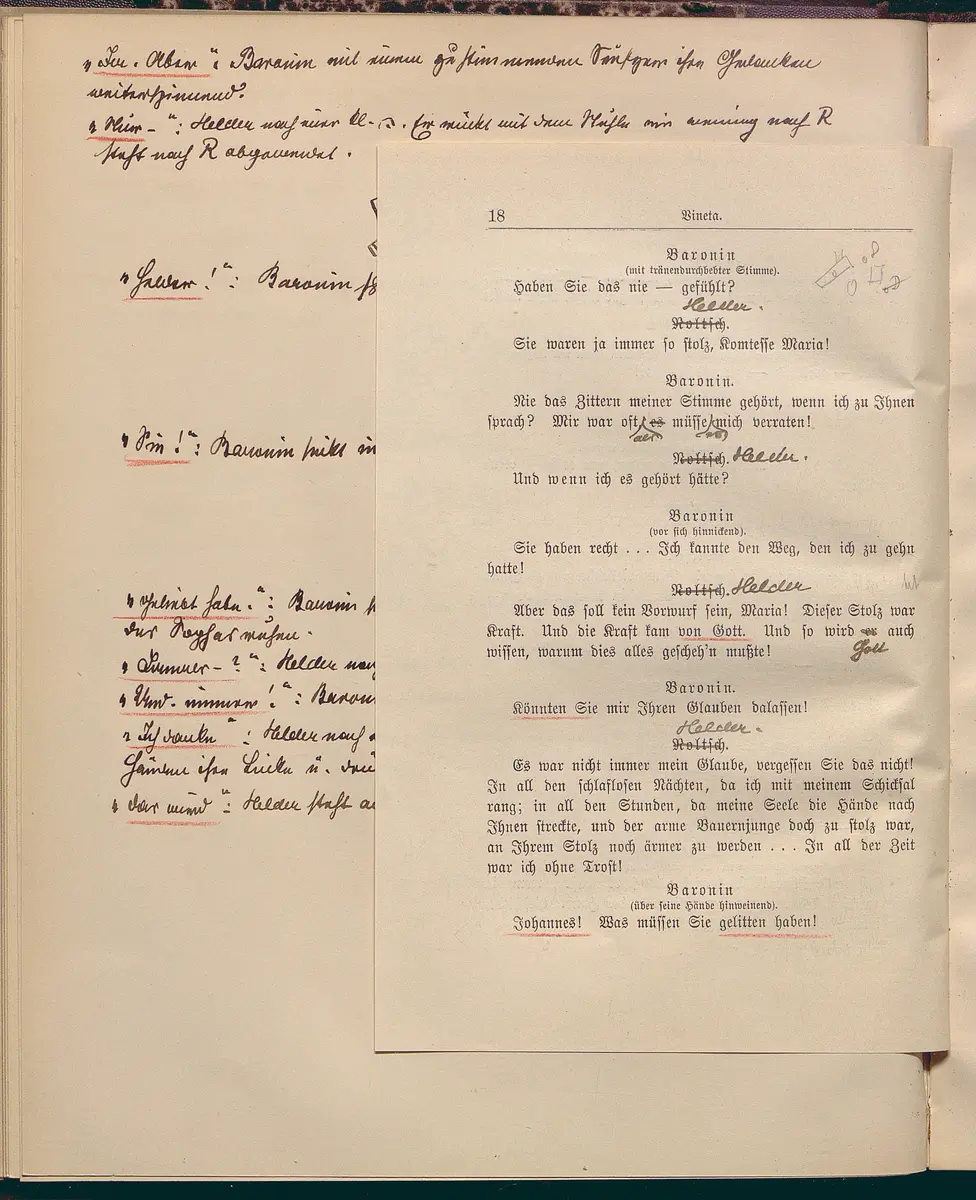 „Ja. Aber“: Baronin mit einem zustimmenden Seufzer ihre Gedanken
weiterspinnend.
„Nur –“: Helder nach einer Er rückt mit dem Stuhle ein wenig nach R
steht nach R abgewendet.
„Helder!“: Baronin
„Sin!“: Baronin sinkt in
„geliebt habe.“: Baronin
des Sophas
„Immer – ?“: Helder nach
„Und immer!“: Baronin
„Ich danke“: Helder nach
Händen ihre Linke u.
„das wird“: Helder steht
18 Vineta.
Baronin
(mit tränendurchbebter Stimme).
Haben Sie das nie — gefühlt?
Helder.
Roltsch.
Sie waren ja immer so stolz, Komtesse Maria!
Baronin.
Nie das Zittern meiner Stimme gehört, wenn ich zu Ihnen
sprach? Mir war oft, es müsse mich verraten!
als es
Roltsch. Helder.
Und wenn ich es gehört hätte?
Baronin
(vor sich hinnickend).
Sie haben recht . . . Ich kannte den Weg, den ich zu gehn
hatte!
Roltsch. Helder
Aber das soll kein Vorwurf sein, Maria! Dieser Stolz war
Kraft. Und die Kraft kam von Gott. Und so wird er auch
wissen, warum dies alles gescheh'n mußte! Gott
Baronin.
Könnten Sie mir Ihren Glauben dalassen!
Helder.
Roltsch.
Es war nicht immer mein Glaube, vergessen Sie das nicht!
In all den schlaflosen Nächten, da ich mit meinem Schicksal
rang; in all den Stunden, da meine Seele die Hände nach
Ihnen streckte, und der arme Bauernjunge doch zu stolz war,
an Ihrem Stolz noch ärmer zu werden . . . In all der Zeit
war ich ohne Trost!
Baronin
(über seine Hände hinweinend).
Johannes! Was müssen Sie gelitten haben!